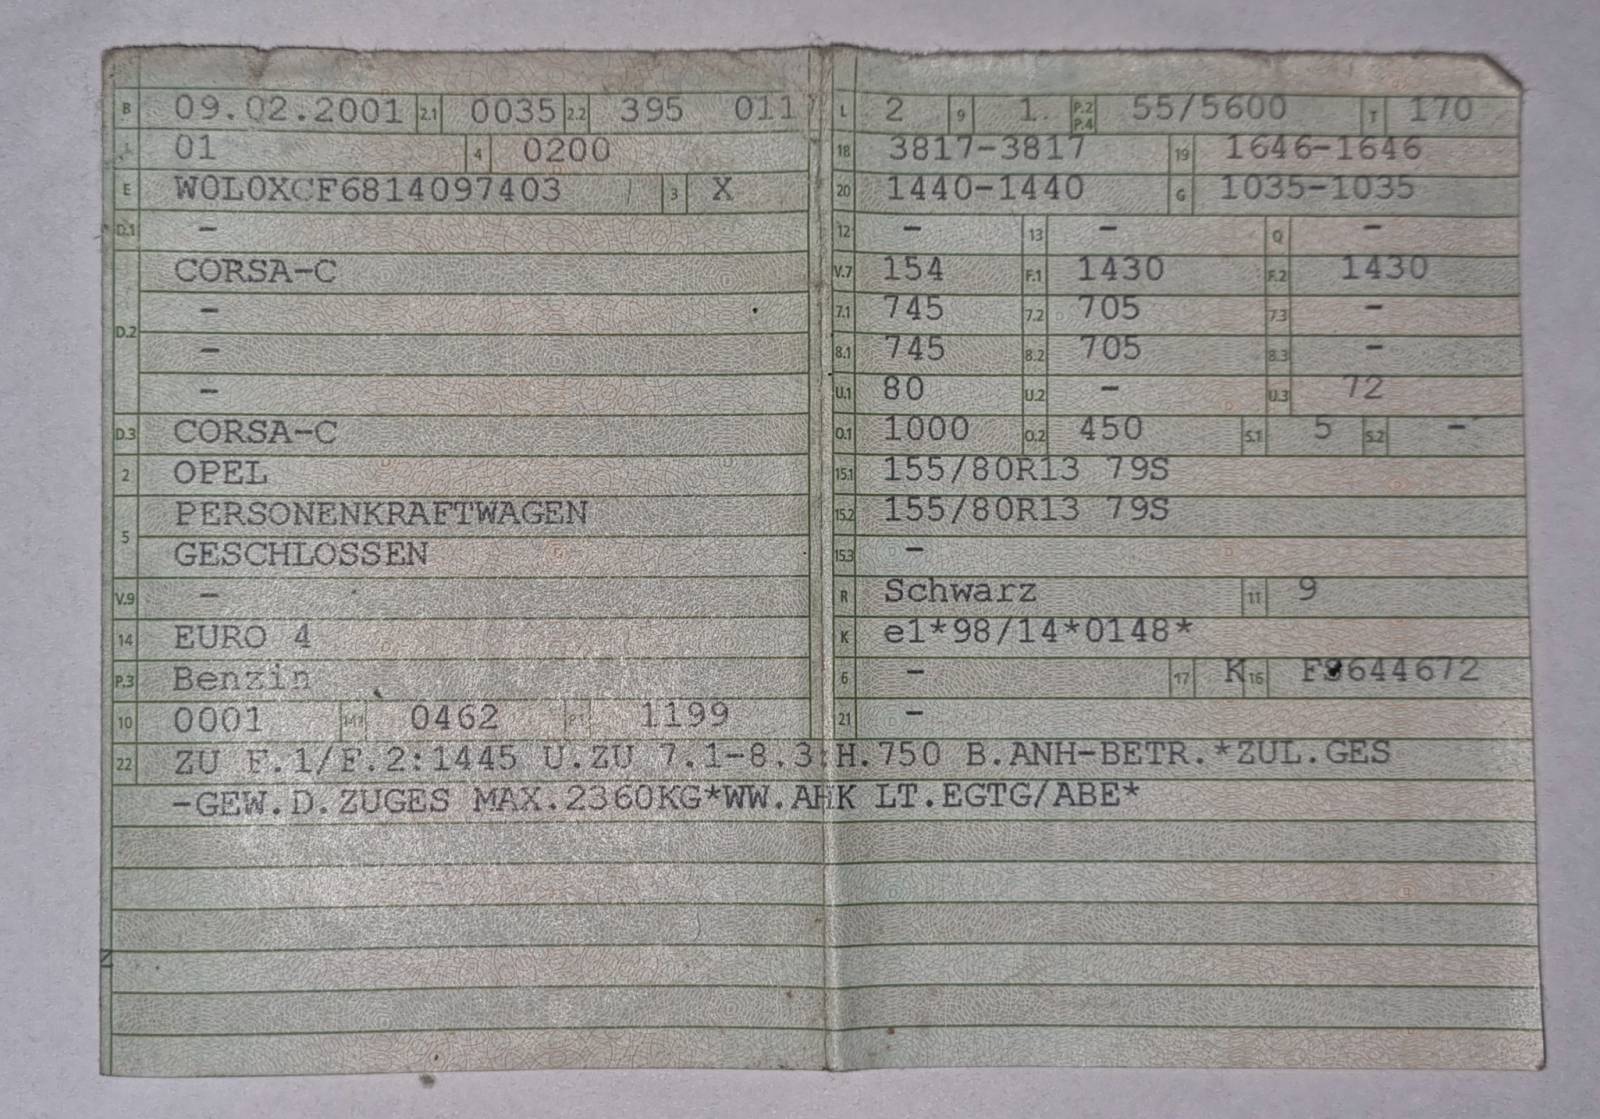 B 09.02.2001 2.1 0035 2.2 395 011
J 01 4 0200
E W0L0XCF6814097403 3 X
D.1 -
D.2 CORSA-C
-
-
-
D.3 CORSA-C
2 OPEL
5 PERSONENKRAFTWAGEN
GESCHLOSSEN
V.9 -
14 EURO 4
P.3 Benzin
10 0001 14.1 0462 P.1 1199
L 2 9 1 P.2 P.4 55/5600 T 170
18 3817-3817 19 1646-1646
20 1440-1440 G 1035-1035
12 - 13 - Q -
V.7 154 F.1 1430 F.2 1430
7.1 745 7.2 705 7.3 -
8.1 745 8.2 705 8.3 -
U.1 80 U.2 - U.3 72
O.1 1000 O.2 450 S.1 5 S.2 -
15.1 155/80R13 79S
15.2 155/80R13 79S
15.3 -
R Schwarz 11 9
K e1*98/14*0148*
6 - 17 K 16 644672
21 -
22 ZU F.1/F.2:1445 U.ZU 7.1-8.3:H.750 B.ANH-BETR.*ZUL.GES
-GEW.D.ZUGES MAX.2360KG*WW.AHK LT.EGTG/ABE*